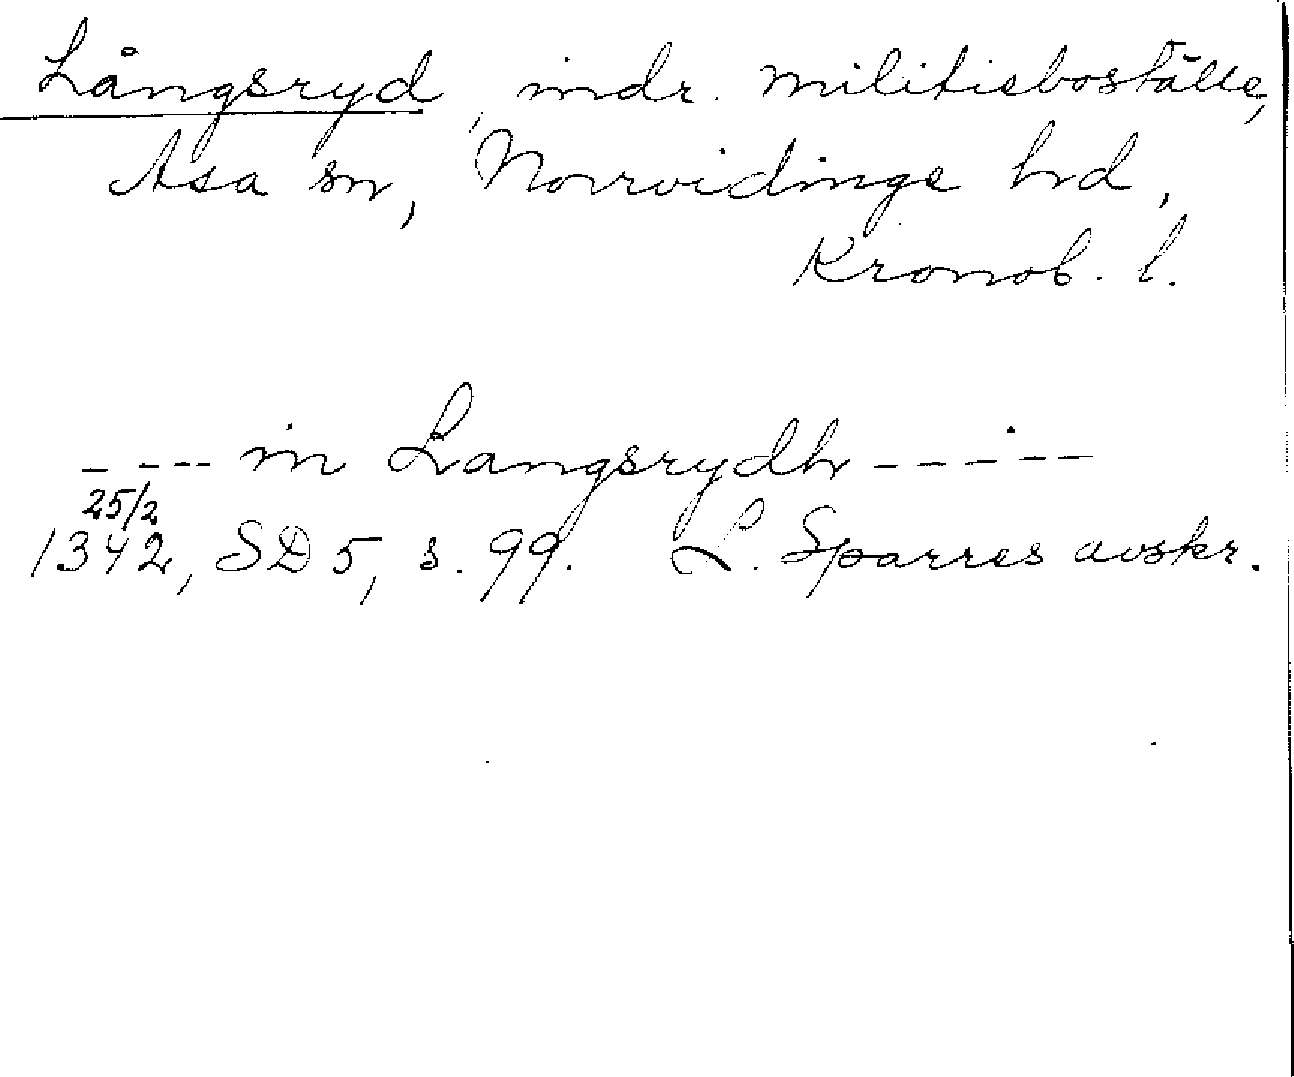 Långsryd, indr. militieboställe,
Asa sn, Norrvidinge hd,
Kronob. l.
----- in Langsrydh -----
25/2
1342, SD 5, s. 99. L. Sparres avskr.